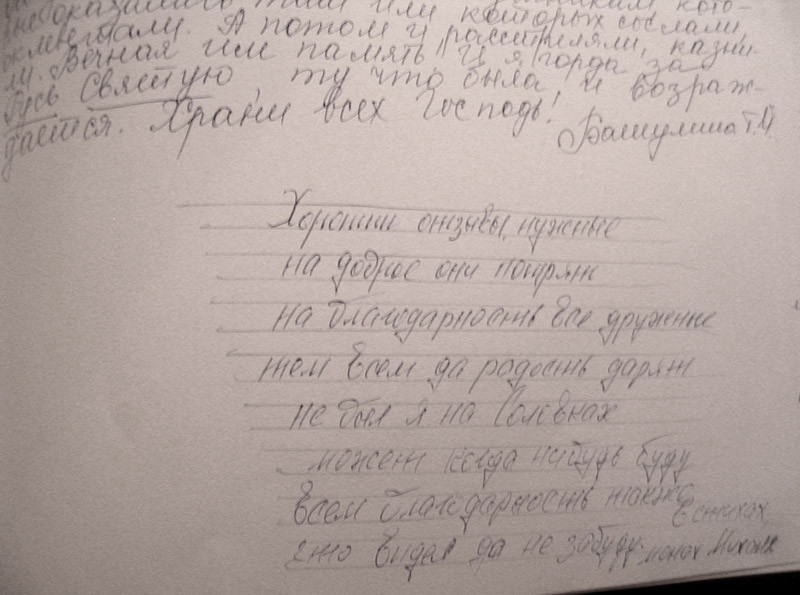 которых ссылали,
А потом и расстреляли, казни-
ли. Вечная им память! И я горда за
Русь Святую, ту что была и возраж-
дается. Храни всех Господь!
Хорошии отзывы, нужные
на доброе они
на благодарность все дружные
тем всем да радость дарят
не был я на
может когда нибудь буду
Всем благодарность также в стихах,
что видел да не забуду. монах